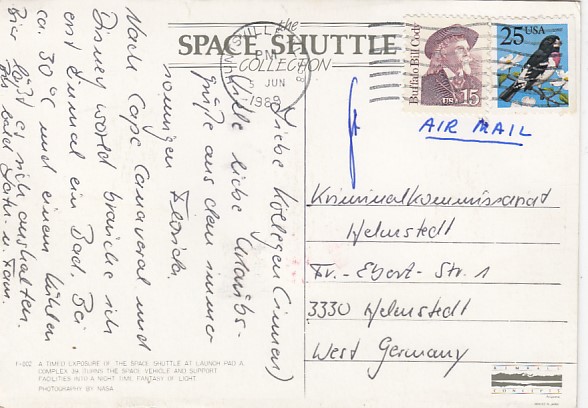 the
SPACE SHUTTLE
COLLECTION
PM
8
JUN
1989
Buffalo Bill Cody
US 15
25 USA
AIR MAIL
Liebe Kollegen(innen)
viele liebe Urlaubs-
grüße aus dem immer
sonnigen Florida.
Nach Cape Canaveral und
Disney world brauche ich
erst einmal ein Bad. Bei
ca. 30° und einem kühlen
Bier läßt es sich aushalten.
Bis bald u. Fam.
Kriminalkommissariat
Helmstedt
Fr.-Ebert-Str. 1
3330 Helmstedt
West Germany
F-002 A TIMED EXPOSURE OF THE SPACE SHUTTLE AT LAUNCH PAD A,
COMPLEX 39 TURNS THE SPACE VEHICLE AND SUPPORT
FACILITIES INTO A NIGHT TIME FANTASY OF LIGHT.
PHOTOGRAPHY BY NASA